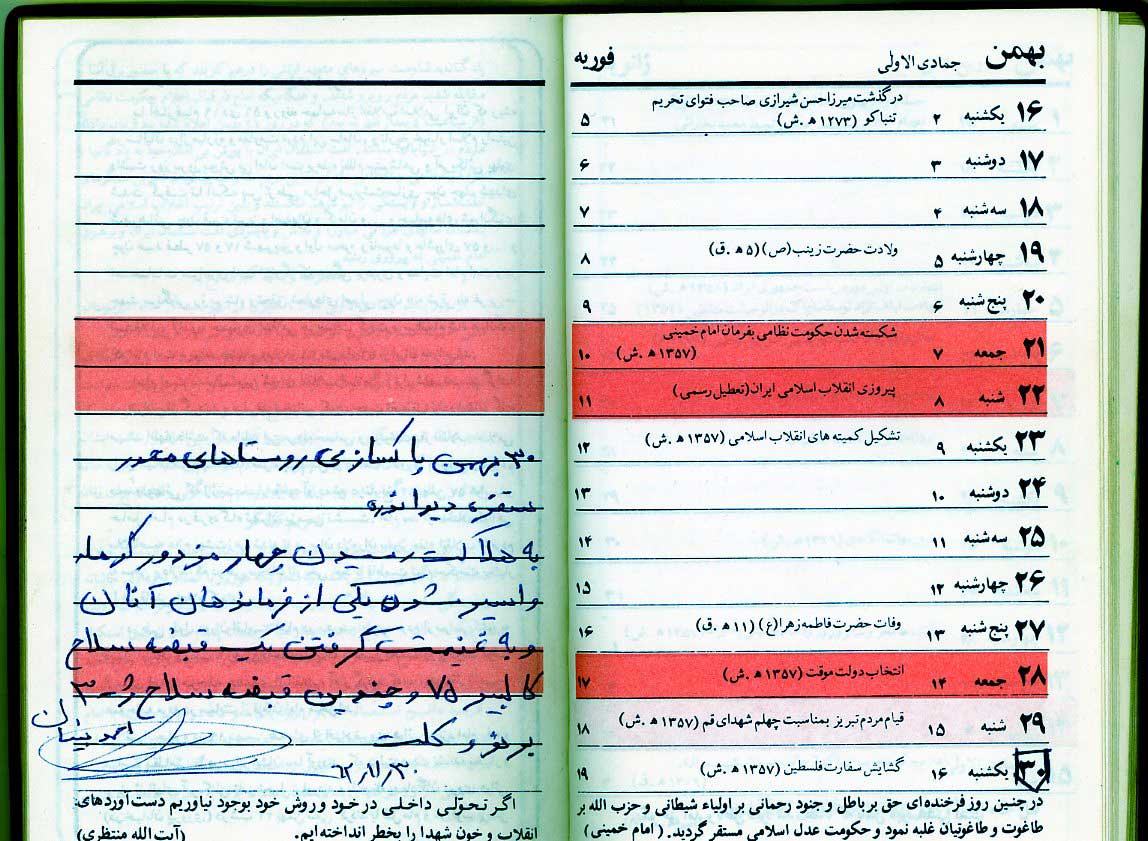 بهمن جمادی الاولی فوریه
۱۶ یکشنبه ۲ درگذشت میرزاحسن شیرازی صاحب فتوای تحریم
تنباکو (۱۲۷۳ ه.ش) ۵
۱۷ دوشنبه ۳ ۶
۱۸ سه‌شنبه ۴ ۷
۱۹ چهارشنبه ۵ ولادت حضرت زینب(ص) (۵ ه.ق) ۸
۲۰ پنج‌شنبه ۶ ۹
۲۱ جمعه ۷ شکسته‌شدن حکومت نظامی بفرمان امام خمینی
(۱۳۵۷ ه.ش) ۱۰
۲۲ شنبه ۸ پیروزی انقلاب اسلامی ایران(تعطیل رسمی) ۱۱
۲۳ یکشنبه ۹ تشکیل کمیته های انقلاب اسلامی (۱۳۵۷ ه.ش) ۱۲
۲۴ دوشنبه ۱۰ ۱۳
۲۵ سه‌شنبه ۱۱ ۱۴
۲۶ چهارشنبه ۱۲ ۱۵
۲۷ پنج‌شنبه ۱۳ وفات حضرت فاطمه زهرا(ع) (۱۱ ه.ق) ۱۶
۲۸ جمعه ۱۴ انتخاب دولت موقت (۱۳۵۷ ه.ش) ۱۷
۲۹ شنبه ۱۵ قیام مردم تبریز بمناسبت چهلم شهدای قم (۱۳۵۷ ه.ش) ۱۸
۳۰ یکشنبه ۱۶ گشایش سفارت فلسطین (۱۳۵۷ ه.ش) ۱۹
در چنین روز فرخنده‌ای حق بر باطل و جنود رحمانی بر اولیاء شیطانی و حزب الله بر
طاغوت و طاغوتیان غلبه نمود و حکومت عدل اسلامی مستقر گردید. (امام خمینی)
۳۰ بهمن پاکسازی روستاهای محور
سقز، دیواندره
به هلاکت رسیدن چهار مزدور کومله
واسیر شدن یکی از فرماندهان آنان
و به غنیمت گرفتن یک قبضه سلاح
کالیبر ۷۵ و چندین قبضه سلاح ژ-۳
برنو و کلت
احمد
۶۲/۱۱/۳۰
اگر تحوّلی داخلی در خود و روش خود بوجود نیاوریم دست‌آوردهای
انقلاب و خون شهدا را بخطر انداخته‌ایم. (آیت الله منتظری)